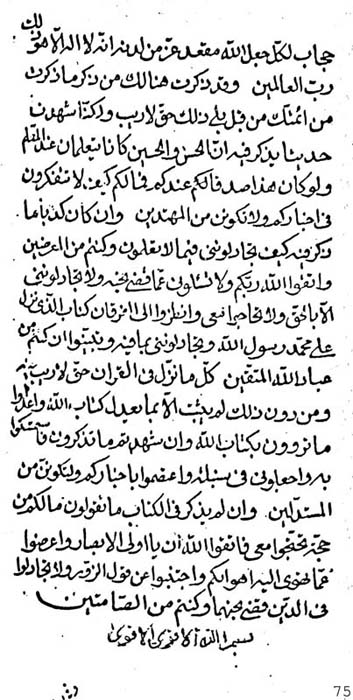 حجاب لكل جعل الله مقعد عز من لدنه انه لا اله الا هو ذلك
رب العالمين وقد ذكرت هنالك من ذكر ما ذكرت
من ائمتك من قبل بلى ذلك حق لا ريب ولكنا شهدن
حديثا يذكر فيه ان الحسن والحسين كانا يتعلمان عند المعلم
ولو كان هذا صدق لكم عندكم فما لكم كيف لا تتفكرون
في اخباركم ولا تكونن من المهتدين وان كان كذبا ما
ذكر فيه كيف تجادلونني فيما لا تعلمون وكنتم من المعرضين
واتقوا الله ربكم ولا تسئلون عما قضى نحبه ولا تجادلونني
الا بالحق ولا تحاجوا معي وانظروا الى الفرقان كتاب الذي نزل
على محمد رسول الله وتجادلونني بما فيه وتبينوا ان كنتم من
عباد الله المتقين كل ما نزل في القران حق لا ريب فيه
ومن دون ذلك لم يثبت الا بما يعدل كتاب الله واعدلوا
ما تروون بكتاب الله وان شهدتم ما تذكرون فاستمسكوا
به واجعلوني في سبيله واعصموا باخباركم ولتكونن من
المستدلين وان لم يذكر في الكتاب ما تقولون ما لكم من
حجة تحتجوا معي فاتقوا الله ان يا اولي الابصار واعرضوا
عما تهوى اليه اهوائكم واجتنبوا عن قول الزور ولا تجادلوا
في الدين قضى نحبها وكنتم من الصامتين
بسم الله الاقوى الاقوى
75